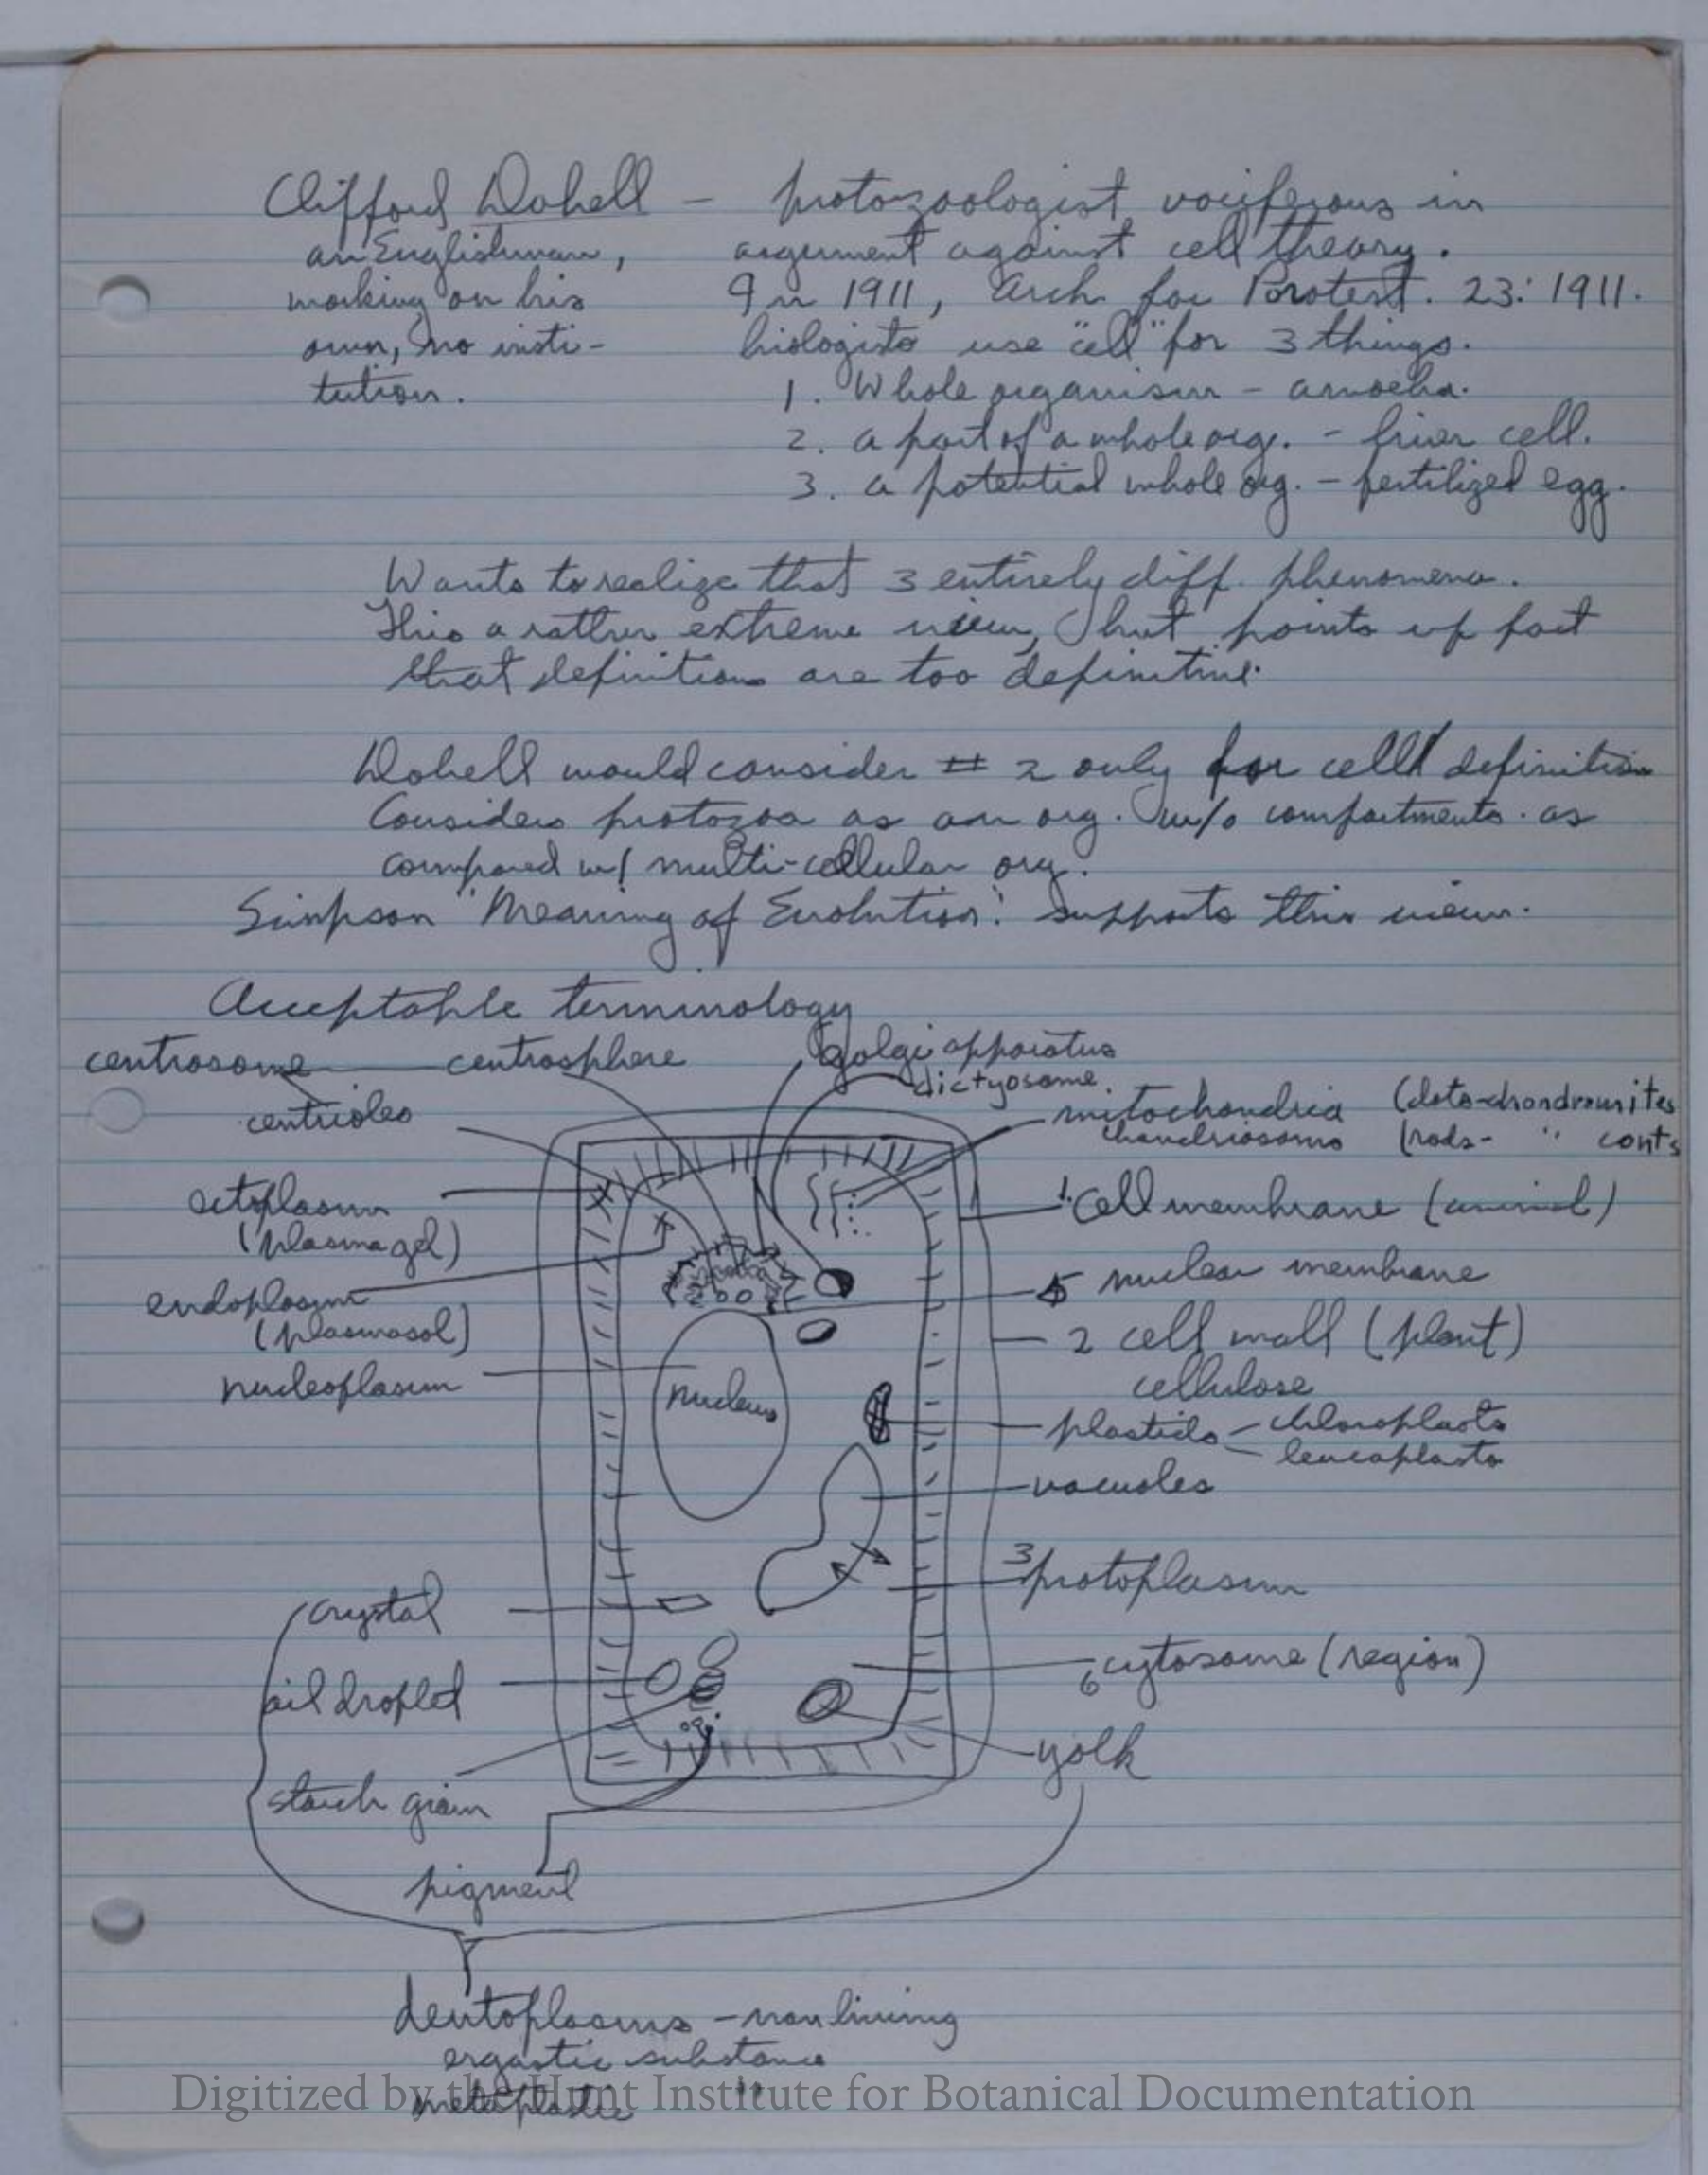 Clifford Dobell – protozoologist vociferous in
an Englishman, argument against cell theory.
working on his In 1911, Arch. für Protest. 23: 1911.
own, no insti- biologists use "cell" for 3 things.
tution. 1. Whole organism – amoeba.
2. a part of a whole org. – liver cell.
3. a potential whole org. – fertilized egg.
Wants to realize that 3 entirely diff. phenomena.
This a rather extreme view, but points up fact
that definitions are too definitive.
Dobell would consider # 2 only for cell definition
Considers protozoa as an org. w/o compartments as
compared w/ multi-cellular org.
Simpson "Meaning of Evolution" supports this view.
Acceptable terminology
centrosome centrosphere Golgi apparatus
dictyosome.
centrioles mitochondria (dots-chondromites
chondriosomes (rods- " conts
ectoplasm 1. Cell membrane (animal)
(plasmagel)
5 nuclear membrane
endoplasm
(plasmasol) 2 cell wall (plant)
nucleoplasm cellulose
nucleus
plastids – chloroplasts
leucoplasts
vacuoles
3 protoplasm
crystal
6 cytosome (region)
oil droplet
yolk
starch grain
pigment
deutoplasms – nonliving
ergastic substance
metaplastic "
Digitized by the Hunt Institute for Botanical Documentation